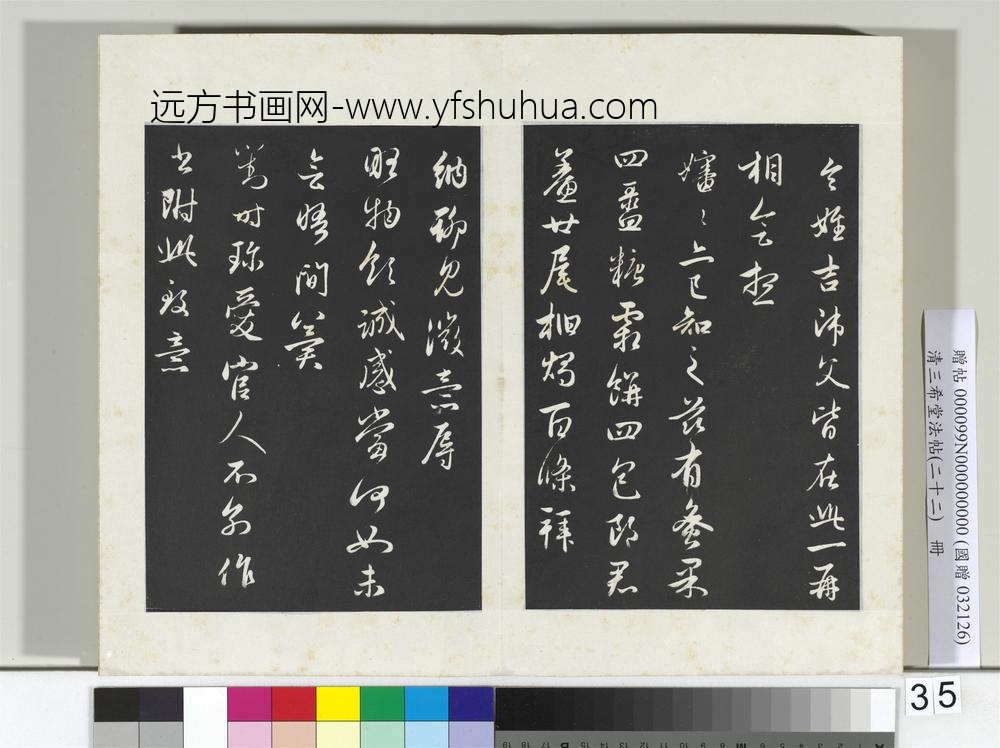 远方书画网-www.yfshuhua.com
令姪吉沛父皆在此一再
相會想
嬸〻上已知之茲有
四
糖霜餅四包郎君
廿尾桕燭百條拜
納聊見微意辱
貺物領誠感當何如未
會晤間冀
對時珍愛官人不別作
書附此致意
贈帖 000099N000000000 (國贈 032126)
清三希堂法帖(二十二) 冊
35